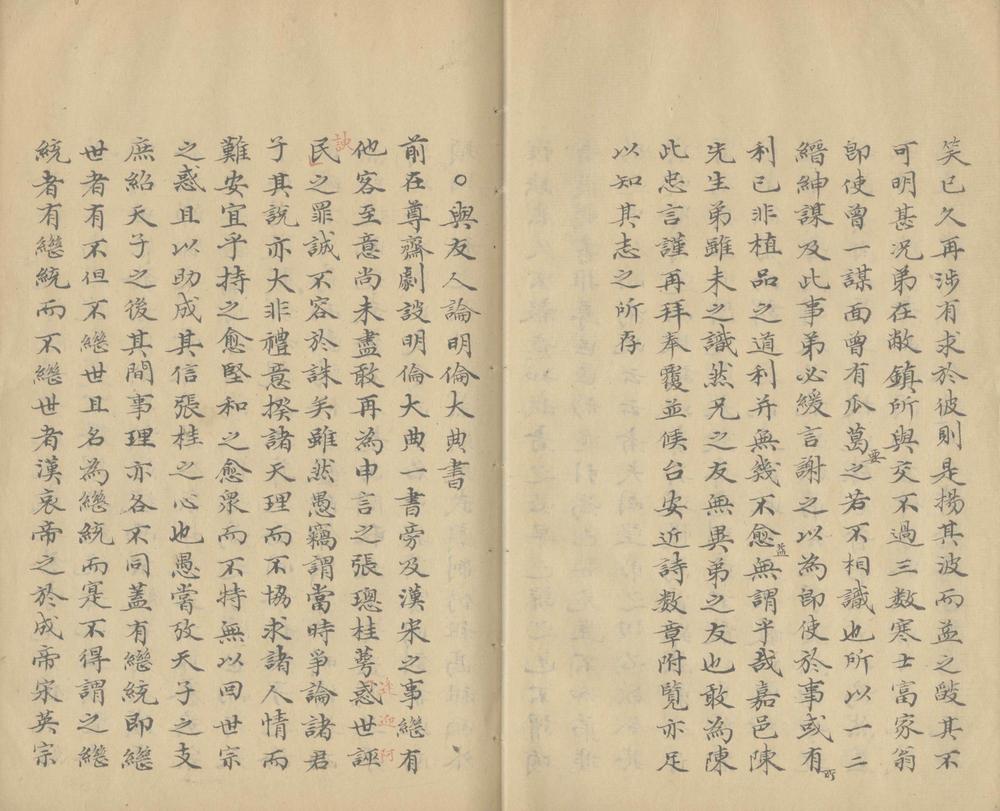 笑已久再涉有求於彼則是揚其波而益之皷其不
可明甚況弟在敝鎮所與交不過三数寒士富家翁
即使曽一謀面曽有瓜葛之若不相識也所以一二
縉紳謀及此事弟必緩言謝之以為即使於事或有
利已非植品之道利并無幾不愈無謂乎哉嘉邑陳
先生弟雖未之識然兄之友無異弟之友也敢為陳
此忠言謹再拜奉覆並候台安近詩数章附覽亦足
以知其志之所存
○與友人論明倫大典書
前在尊齋劇談明倫大典一書旁及漢宋之事繼有
他客至意尚未盡敢再為申言之張璁桂萼惑世誣
民之罪誠不容於誅矣雖然愚竊謂當時爭論諸君
子其說亦大非禮意揆諸天理而不協求諸人情而
難安宜乎持之愈堅和之愈衆而不特無以回世宗
之惑且以助成其信張桂之心也愚嘗攷天子之支
庶紹天子之後其間事理亦各不同蓋有繼統即繼
世者有不但不繼世且名為繼統而寔不得謂之繼
統者有繼統而不繼世者漢哀帝之於成帝宋英宗